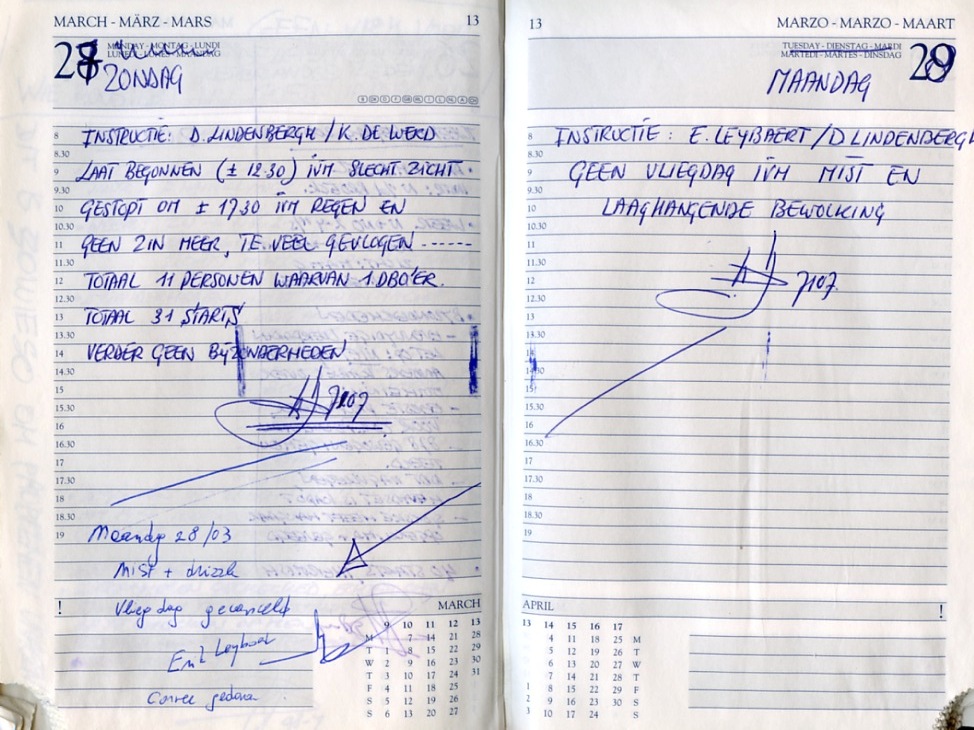 MARCH - MÄRZ - MARS 13
28 MONDAY - MONTAG - LUNDI
ZONDAG
8 INSTRUCTIE: D. LINDENBERGH / K. DE WERD
8.30
9 LAAT BEGONNEN (± 12.30) IVM SLECHT ZICHT.
9.30
10 GESTOPT OM ± 1730 IVM REGEN EN
10.30
11 GEEN ZIN MEER, TE VEEL GEVLOGEN ------
11.30
12 TOTAAL 11 PERSONEN WAARVAN 1 DBO'ER.
12.30
13 TOTAAL 31 STARTS
13.30
14 VERDER GEEN BIJZONDERHEDEN
15
15.30
16
16.30
17
17.30
18
18.30
19 Maandag 28/03
Mist + drizzle
! Vliegdag gecanceld
MARCH
9 10 11 12 13
M 7 14 21 28
T 1 8 15 22 29
W 2 9 16 23 30
T 3 10 17 24 31
F 4 11 18 25
S 5 12 19 26
S 6 13 20 27
13 MARZO - MARZO - MAART
TUESDAY - DIENSTAG - MARDI 29
MARTEDI - MARTES - DINSDAG
MAANDAG
8 INSTRUCTIE: E. LEYBAERT / D LINDENBERGH
8.30
9 GEEN VLIEGDAG IVM MIST EN
9.30
10 LAAGHANGENDE BEWOLKING
10.30
11
11.30
12
12.30
13
13.30
14
14.30
15
15.30
16
16.30
17
17.30
18
18.30
19
APRIL !
13 14 15 16 17
4 11 18 25 M
5 12 19 26 T
6 13 20 27 W
7 14 21 28 T
1 8 15 22 29 F
2 9 16 23 30 S
3 10 17 24 S